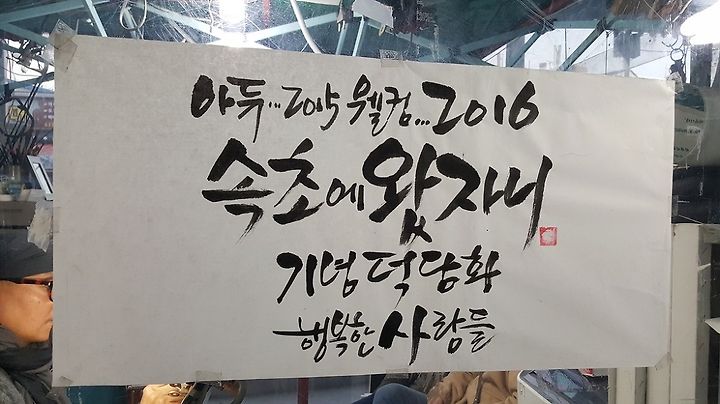 아듀...2015 웰컴...2016
속초에 왔자니
기념덕담화
행복한 사람들